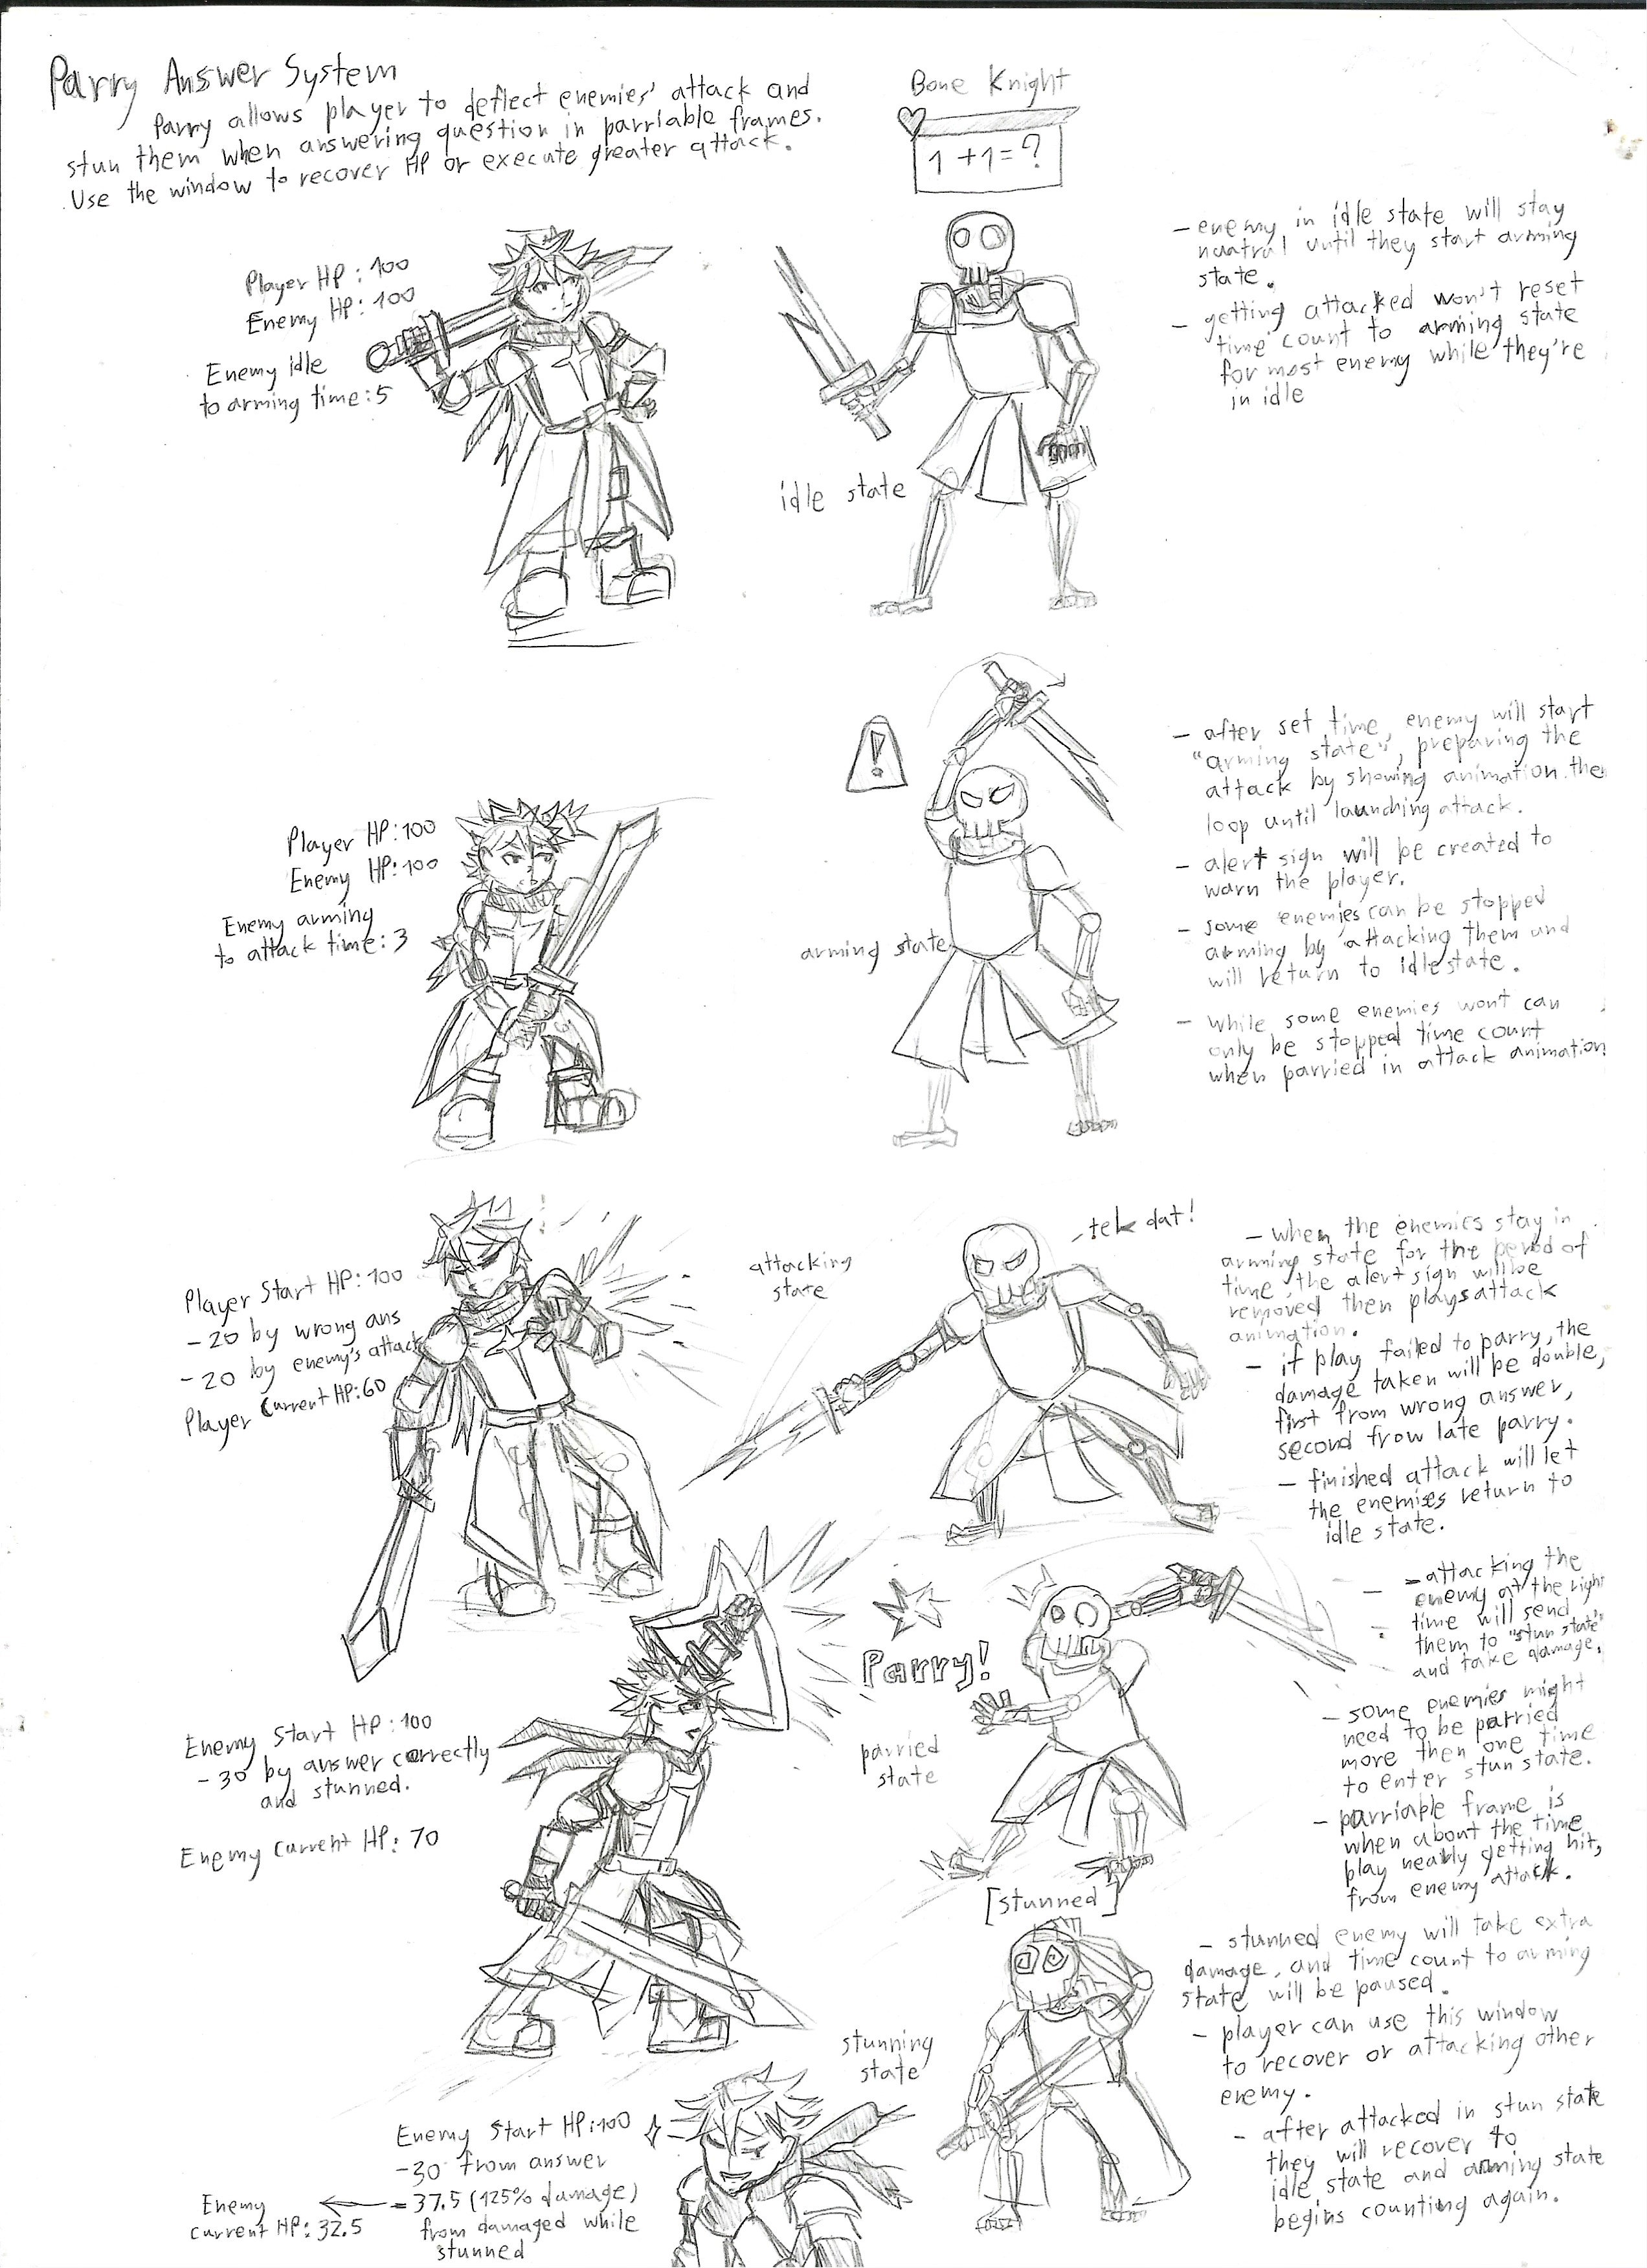 Parry Answer System
Parry allows player to deflect enemies' attack and
stun them when answering question in parriable frames.
Use the window to recover HP or execute greater attack.
Bone Knight
1+1=?
Player HP: 100
Enemy HP: 100
Enemy idle
to arming time: 5
idle state
- enemy in idle state will stay
nuatral until they start arming
state.
- getting attacked won't reset
time count to arming state
for most enemy while they're
in idle
Player HP: 100
Enemy HP: 100
Enemy arming
to attack time: 3
!
arming state
- after set time, enemy will start
"arming state", preparing the
attack by showing animation then
loop until launching attack.
- alert sign will be created to
warn the player.
- some enemies can be stopped
arming by attacking them and
will return to idle state.
- while some enemies wont can
only be stopped time count
when parried in attack animation
Player Start HP: 100
- 20 by wrong ans
- 20 by enemy's attack
Player Current HP: 60
attacking
state
tek dat!
- when the enemies stay in
arming state for the period of
time, the alert sign will be
removed then plays attack
animation.
- if play failed to parry, the
damage taken will be double,
first from wrong answer,
second from late parry.
- finished attack will let
the enemies return to
idle state.
Enemy Start HP: 100
- 30 by answer correctly
and stunned.
Enemy Current HP: 70
Parry!
parried
state
- attacking the
enemy at the right
time will send
them to "stun state"
and take damage.
- some enemies might
need to be parried
more then one time
to enter stun state.
- parriable frame is
when about the time
play nearly getting hit,
from enemy attack.
[stunned]
stunning
state
- stunned enemy will take extra
damage, and time count to arming
state will be paused.
- player can use this window
to recover or attacking other
enemy.
- after attacked in stun state
they will recover to
idle state and arming state
begins counting again.
Enemy Start HP: 100
- 30 from answer
- 37.5 (125% damage)
from damaged while
stunned
Enemy
current HP: 32.5